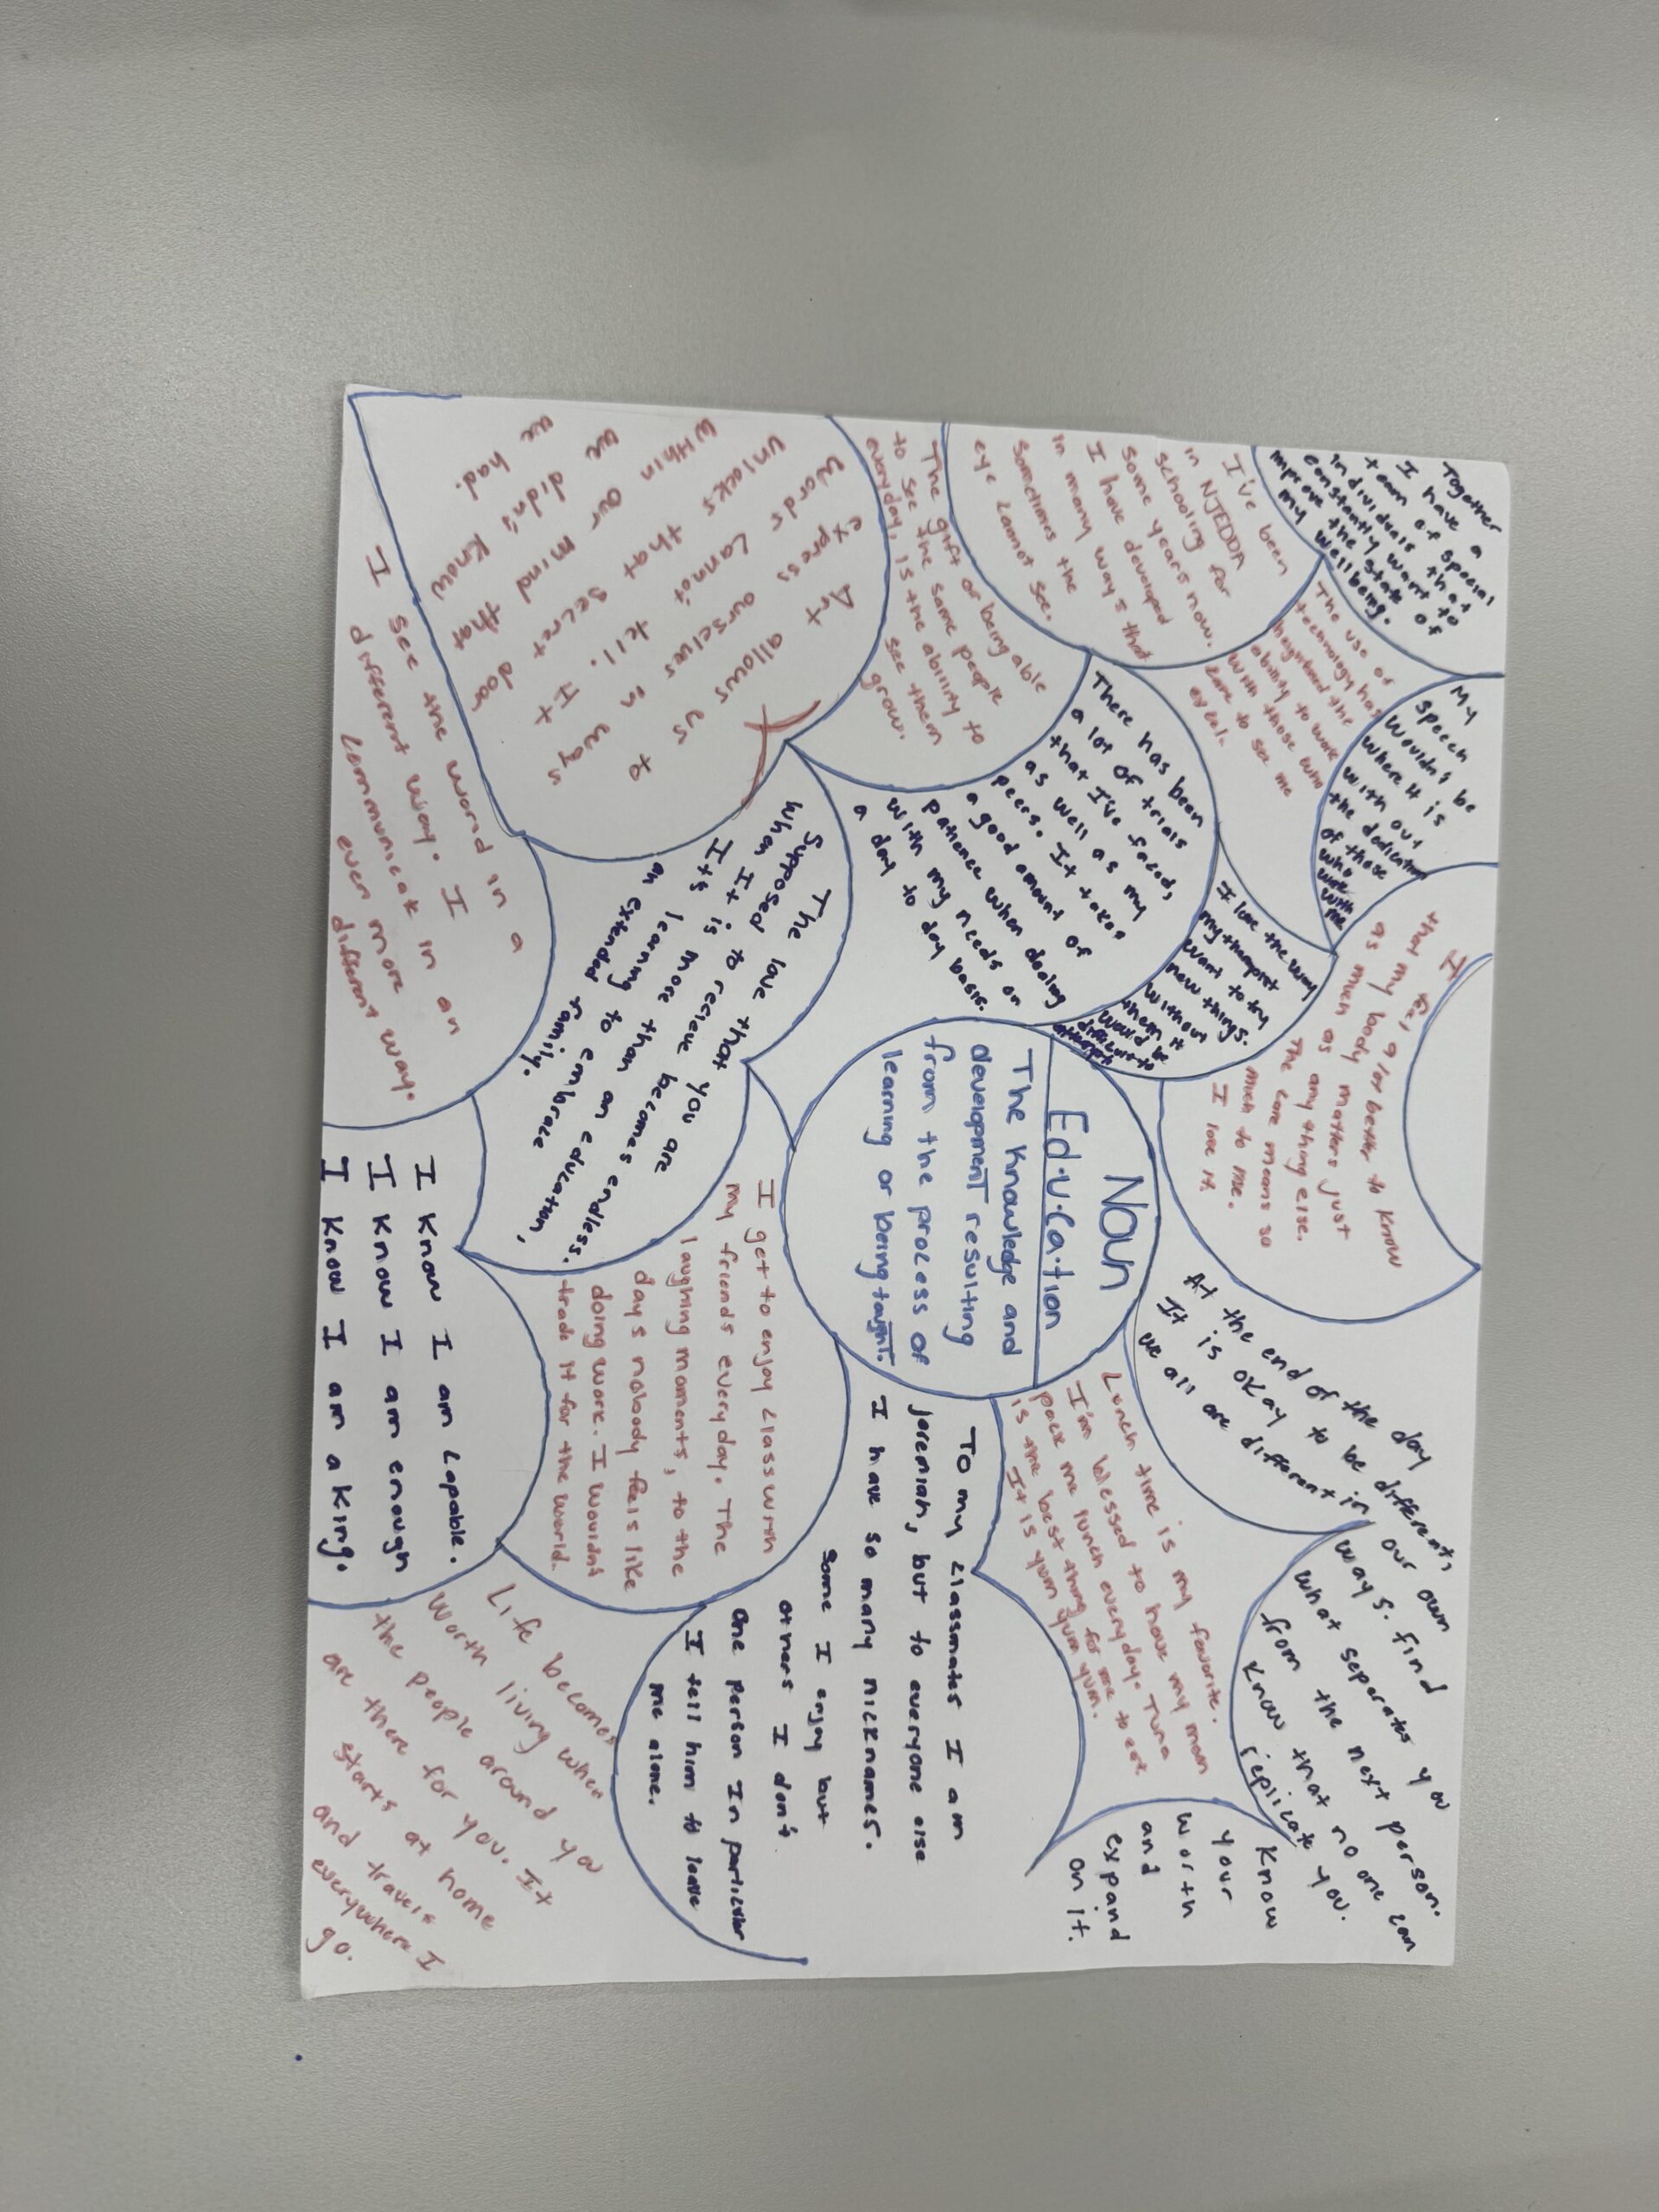 Together
I have a
team of special
individuals that
constantly want to
improve the state of
my wellbeing.
My
speech
wouldn't be
where it is
with out
the dedication
of those
who
work
with
me
I
that my
as much as any thing else.
body matters just
a lot better to know
The care means so
much to me.
I love it.
At the end of the day
It is okay to be different,
we all are different in our own
ways. find
what separates you
from the next person.
Know that no one can
replicate you.
Know
your
worth
and
expand
on it.
I've been
in NJEDDA
schooling for
some years now.
I have developed
in many way's that
sometimes the
eye cannot see.
The use of
technology has
heightened the
ability to work
with those who
care to see me
excel.
I love the way
my therapist
want to try
new things.
without
them it
would be
difficult to
attempt
Noun
Ed·u·ca·tion
The knowledge and
development resulting
from the process of
learning or being taught.
Lunch time is my favorite.
I'm blessed to have my mom
pack me lunch everyday. Tuna
is the best thing for me to eat
It is yum yum yum yum.
The gift of being able
to see the same people
everyday, is the ability to
see them
grow.
There has been
a lot of trials
that I've faced,
as well as my
peers. It takes
a good amount of
patience when dealing
with my needs on
a day to day basis.
To my classmates I am
Jeremiah, but to everyone else
I have so many nicknames.
some I enjoy but
others I don't
One person In particular
I tell him to leave
me alone.
Art allows us to
express ourselves in ways
words cannot tell. It
unlocks that secret door
within our mind that
we didn't know
we had.
The love that you are
supposed to recieve becomes endless.
When It is more than an education,
Its learning to embrace
an extended family.
I get to enjoy class with
my friends everyday. The
laughing moments, to the
days nobody feels like
doing work. I wouldn't
trade it for the world.
I see the world in a
different way. I
communicate in an
even more
different way.
I know I am capable.
I know I am enough
I know I am a king.
Life becomes
worth living when
the people around you
are there for you. It
starts at home
and travels
everywhere I
go.